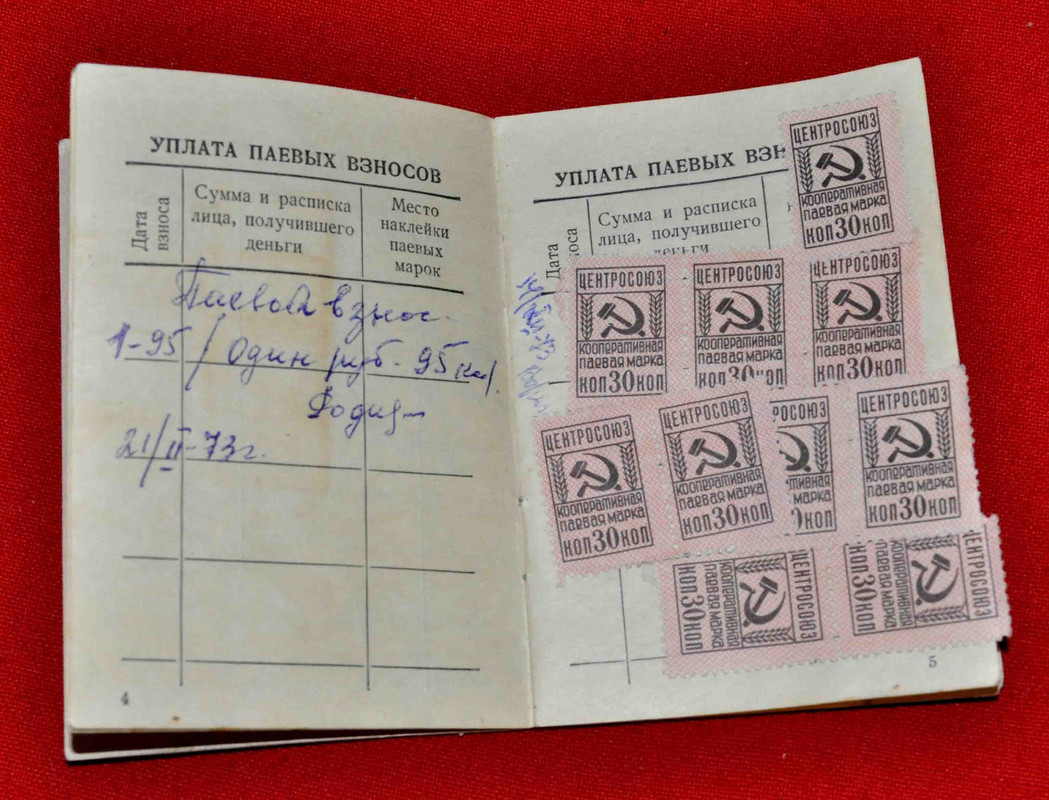 УПЛАТА ПАЕВЫХ ВЗНОСОВ
Дата взноса
Сумма и расписка
лица, получившего
деньги
Место
наклейки
паевых
марок
Паевой взнос.
1-95 / Один руб. 95 коп.
21/II-73г.
4
УПЛАТА ПАЕВЫХ ВЗН
Дата
Сумма и расписка
лица, получившего
деньги
ЦЕНТРОСОЮЗ
КООПЕРАТИВНАЯ
ПАЕВАЯ МАРКА
КОП 30 КОП
ЦЕНТРОСОЮЗ
КООПЕРАТИВНАЯ
ПАЕВАЯ МАРКА
КОП 30 КОП
ЦЕНТРОСОЮЗ
КООПЕРАТИВНАЯ
ПАЕВАЯ МАРКА
КОП 30 КОП
ЦЕНТРОСОЮЗ
КООПЕРАТИВНАЯ
ПАЕВАЯ МАРКА
КОП 30 КОП
ЦЕНТРОСОЮЗ
КООПЕРАТИВНАЯ
ПАЕВАЯ МАРКА
КОП 30 КОП
ЦЕНТРОСОЮЗ
КООПЕРАТИВНАЯ
ПАЕВАЯ МАРКА
КОП 30 КОП
НТРОСОЮЗ
ПЕРАТИВНАЯ
ВАЯ МАРКА
30 КОП
ЦЕНТРОСОЮЗ
КООПЕРАТИВНАЯ
ПАЕВАЯ МАРКА
КОП 30 КОП
ЦЕНТРОСОЮЗ
КООПЕРАТИВНАЯ
ПАЕВАЯ МАРКА
КОП 30 КОП
ЦЕНТРОСОЮЗ
КООПЕРАТИВНАЯ
ПАЕВАЯ МАРКА
КОП 30 КОП
5